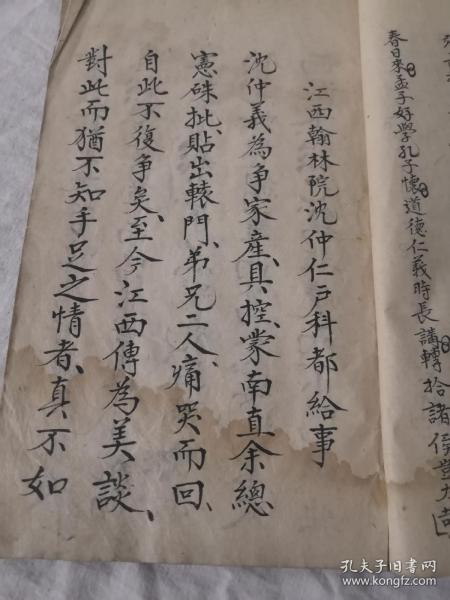 春日來孟子好學孔子懷道德仁義時長講轉拾諸
江西翰林院沈仲仁戸科都給事
沈仲義為爭家產、具控、蒙南直余總
憲硃批、貼出轅門、弟兄二人、痛哭而回、
自此不復爭矣、至今江西傳為美談、
對此而猶不知手足之情者、真不如
孔夫子旧书网
www.kongfz.com